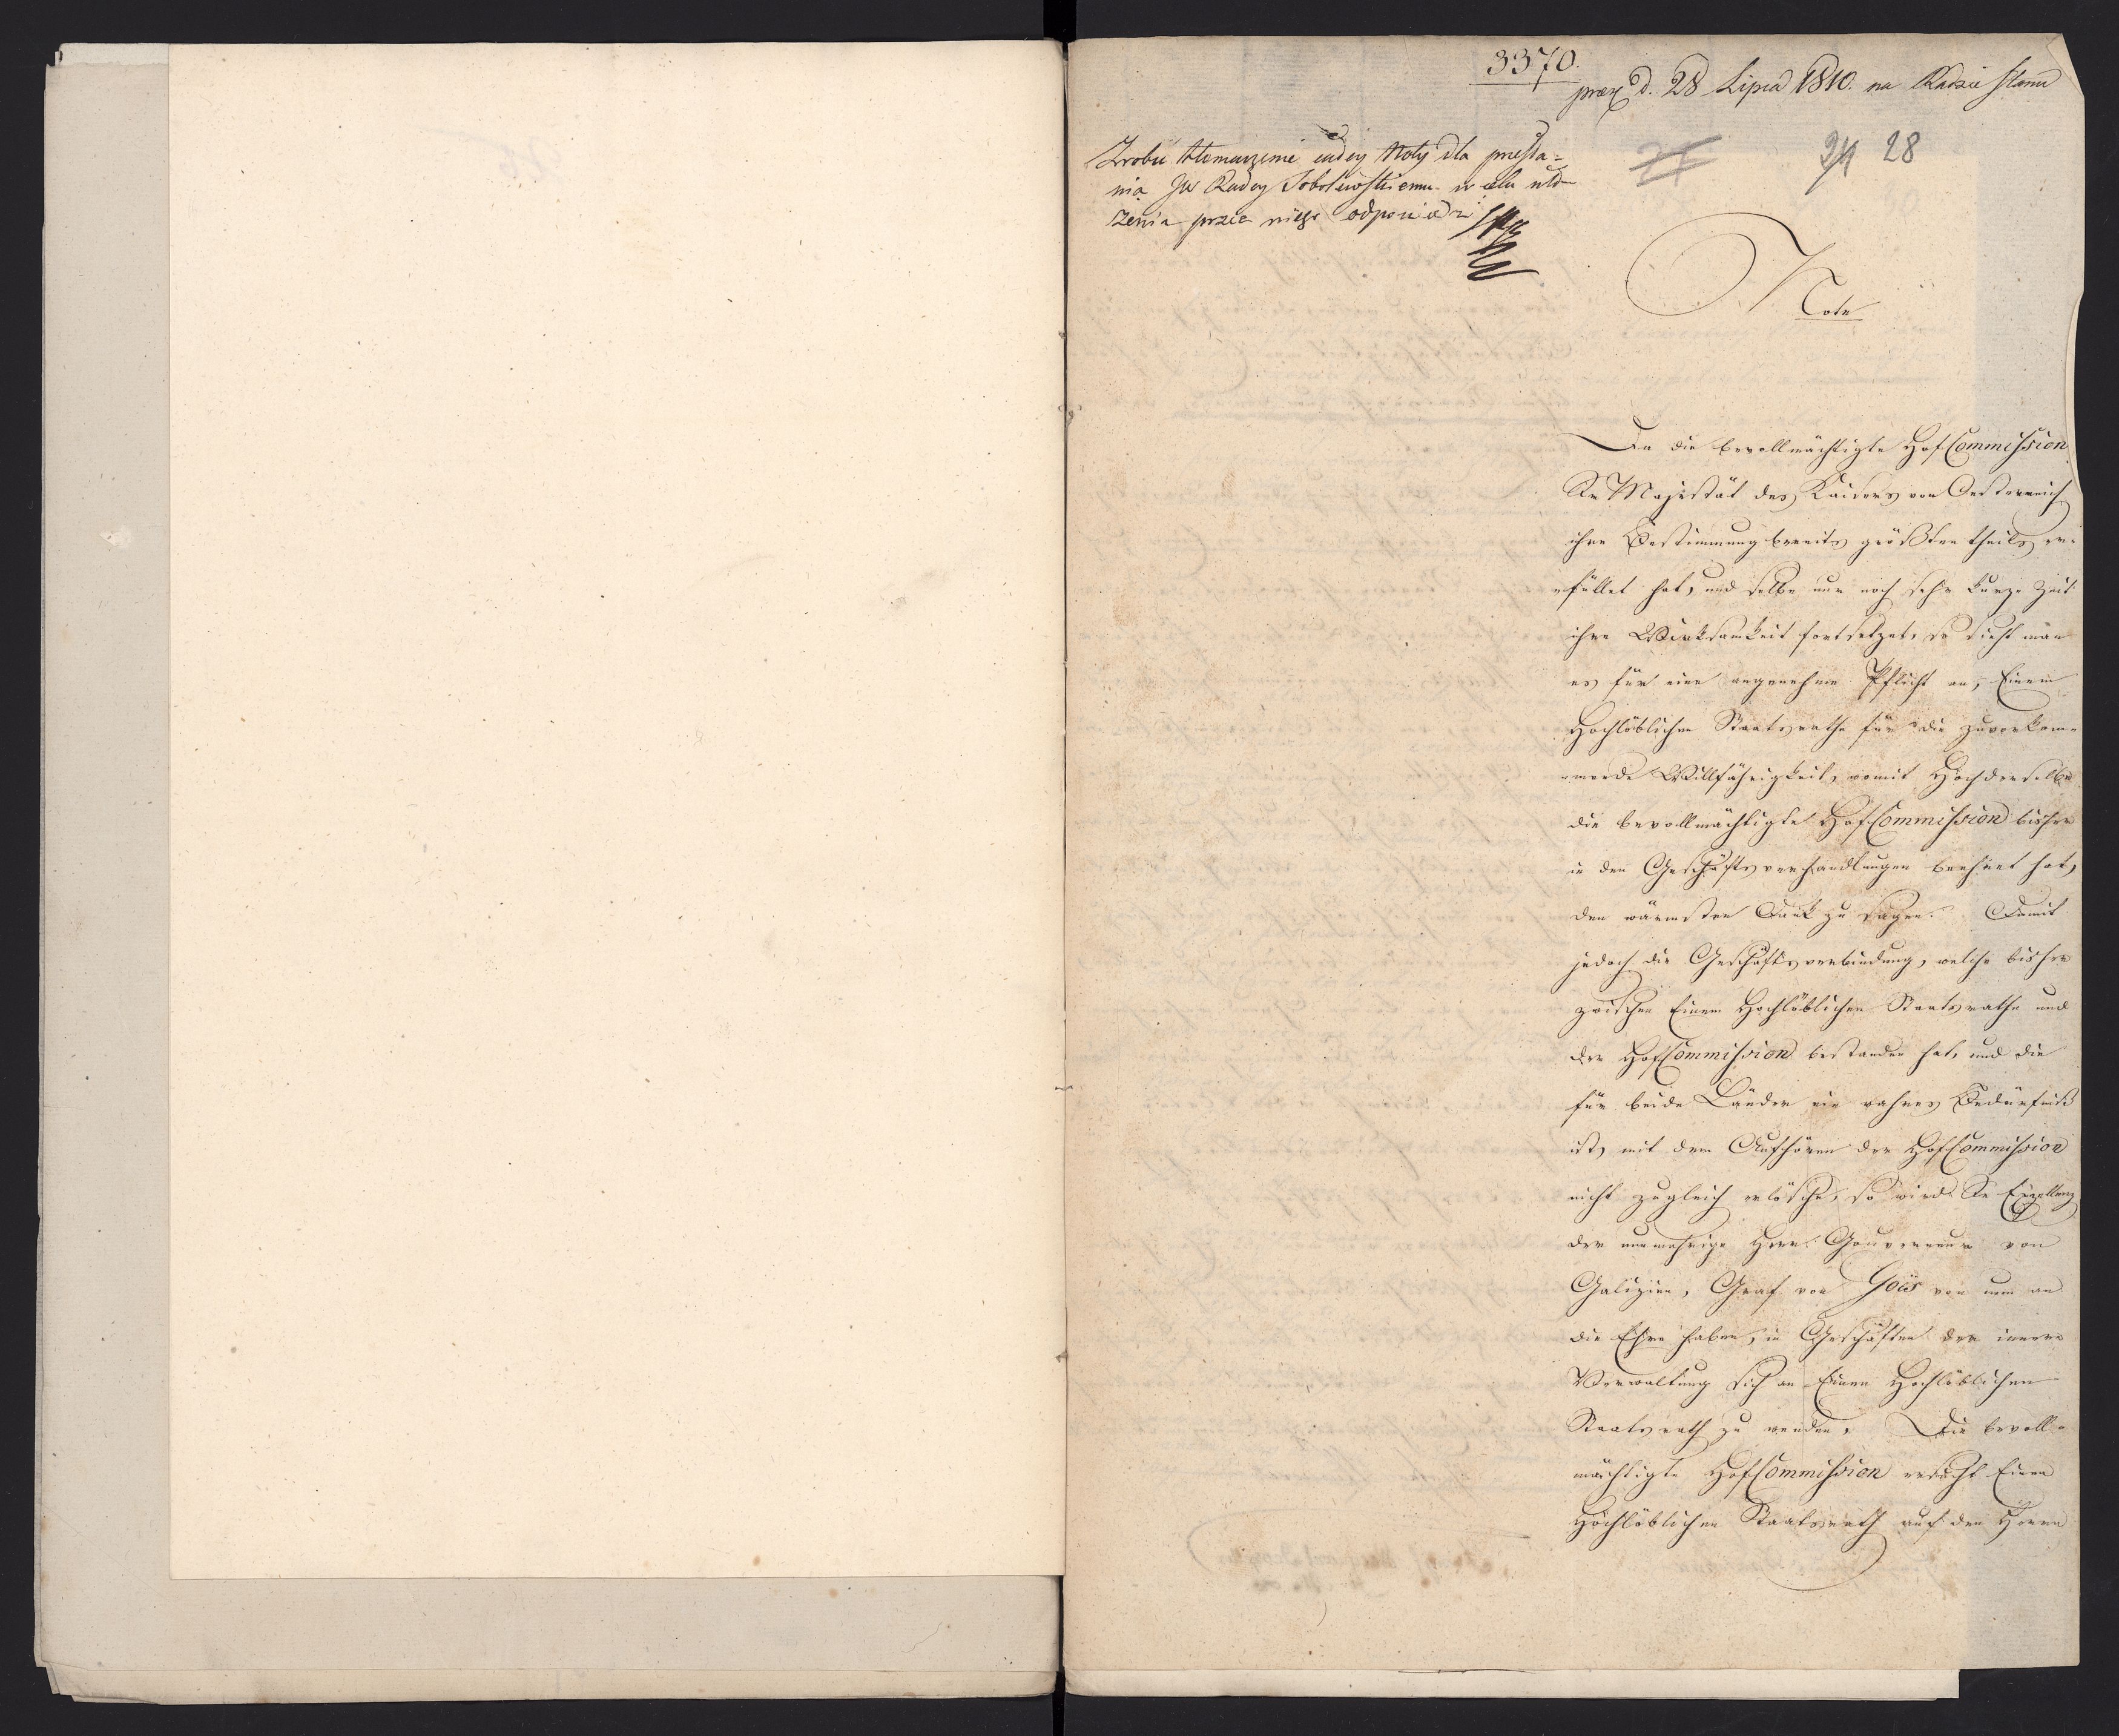 3370.
præs d. 28 Lipca 1810. na Radzie Stanu
Zrobić tłomaczenie całey Noty dla przesła-
nia JW Radcy Sobolewskiemu w celu uło-
żenia przez niego odpowiedzi
28
Note
Da die bevollmächtigte HofCommission
Sr Majestät des Kaisers von Oesterreich
ihre Bestimmung bereits größten theils er-
füllet hat, und selbe nur noch sehr kurze Zeit
ihre Wirksamkeit fortsetzet, so sieht man
es für eine angenehme Pflicht an, Einem
Hochlöblichen Staatsrathe für die zuvorkom-
mende Willfährigkeit, womit Hochderselbe
die bevollmächtigte HofCommission bisher
in den Geschäftsverhandlungen beehret hat,
den wärmsten Dank zu sagen. Damit
jedoch die Geschäftsverbindung, welche bisher
zwischen Einem Hochlöblichen Staatsrathe und
der HofCommission bestanden hat, und die
für beide Länder ein wahres Bedürfniß
ist, mit dem Aufhören der HofCommission
nicht zugleich erlösche, so wird Se Exzellenz
der nunmehrige Herr Gouverneur von
Galizien, Graf von Goës von nun an
die Ehre haben, in Geschäften der innern
Verwaltung sich an Einen Hochlöblichen
Staatsrath zu wenden. Die bevoll-
mächtigte HofCommission ersucht Einen
Hochlöblichen Staatsrath auf den Herrn